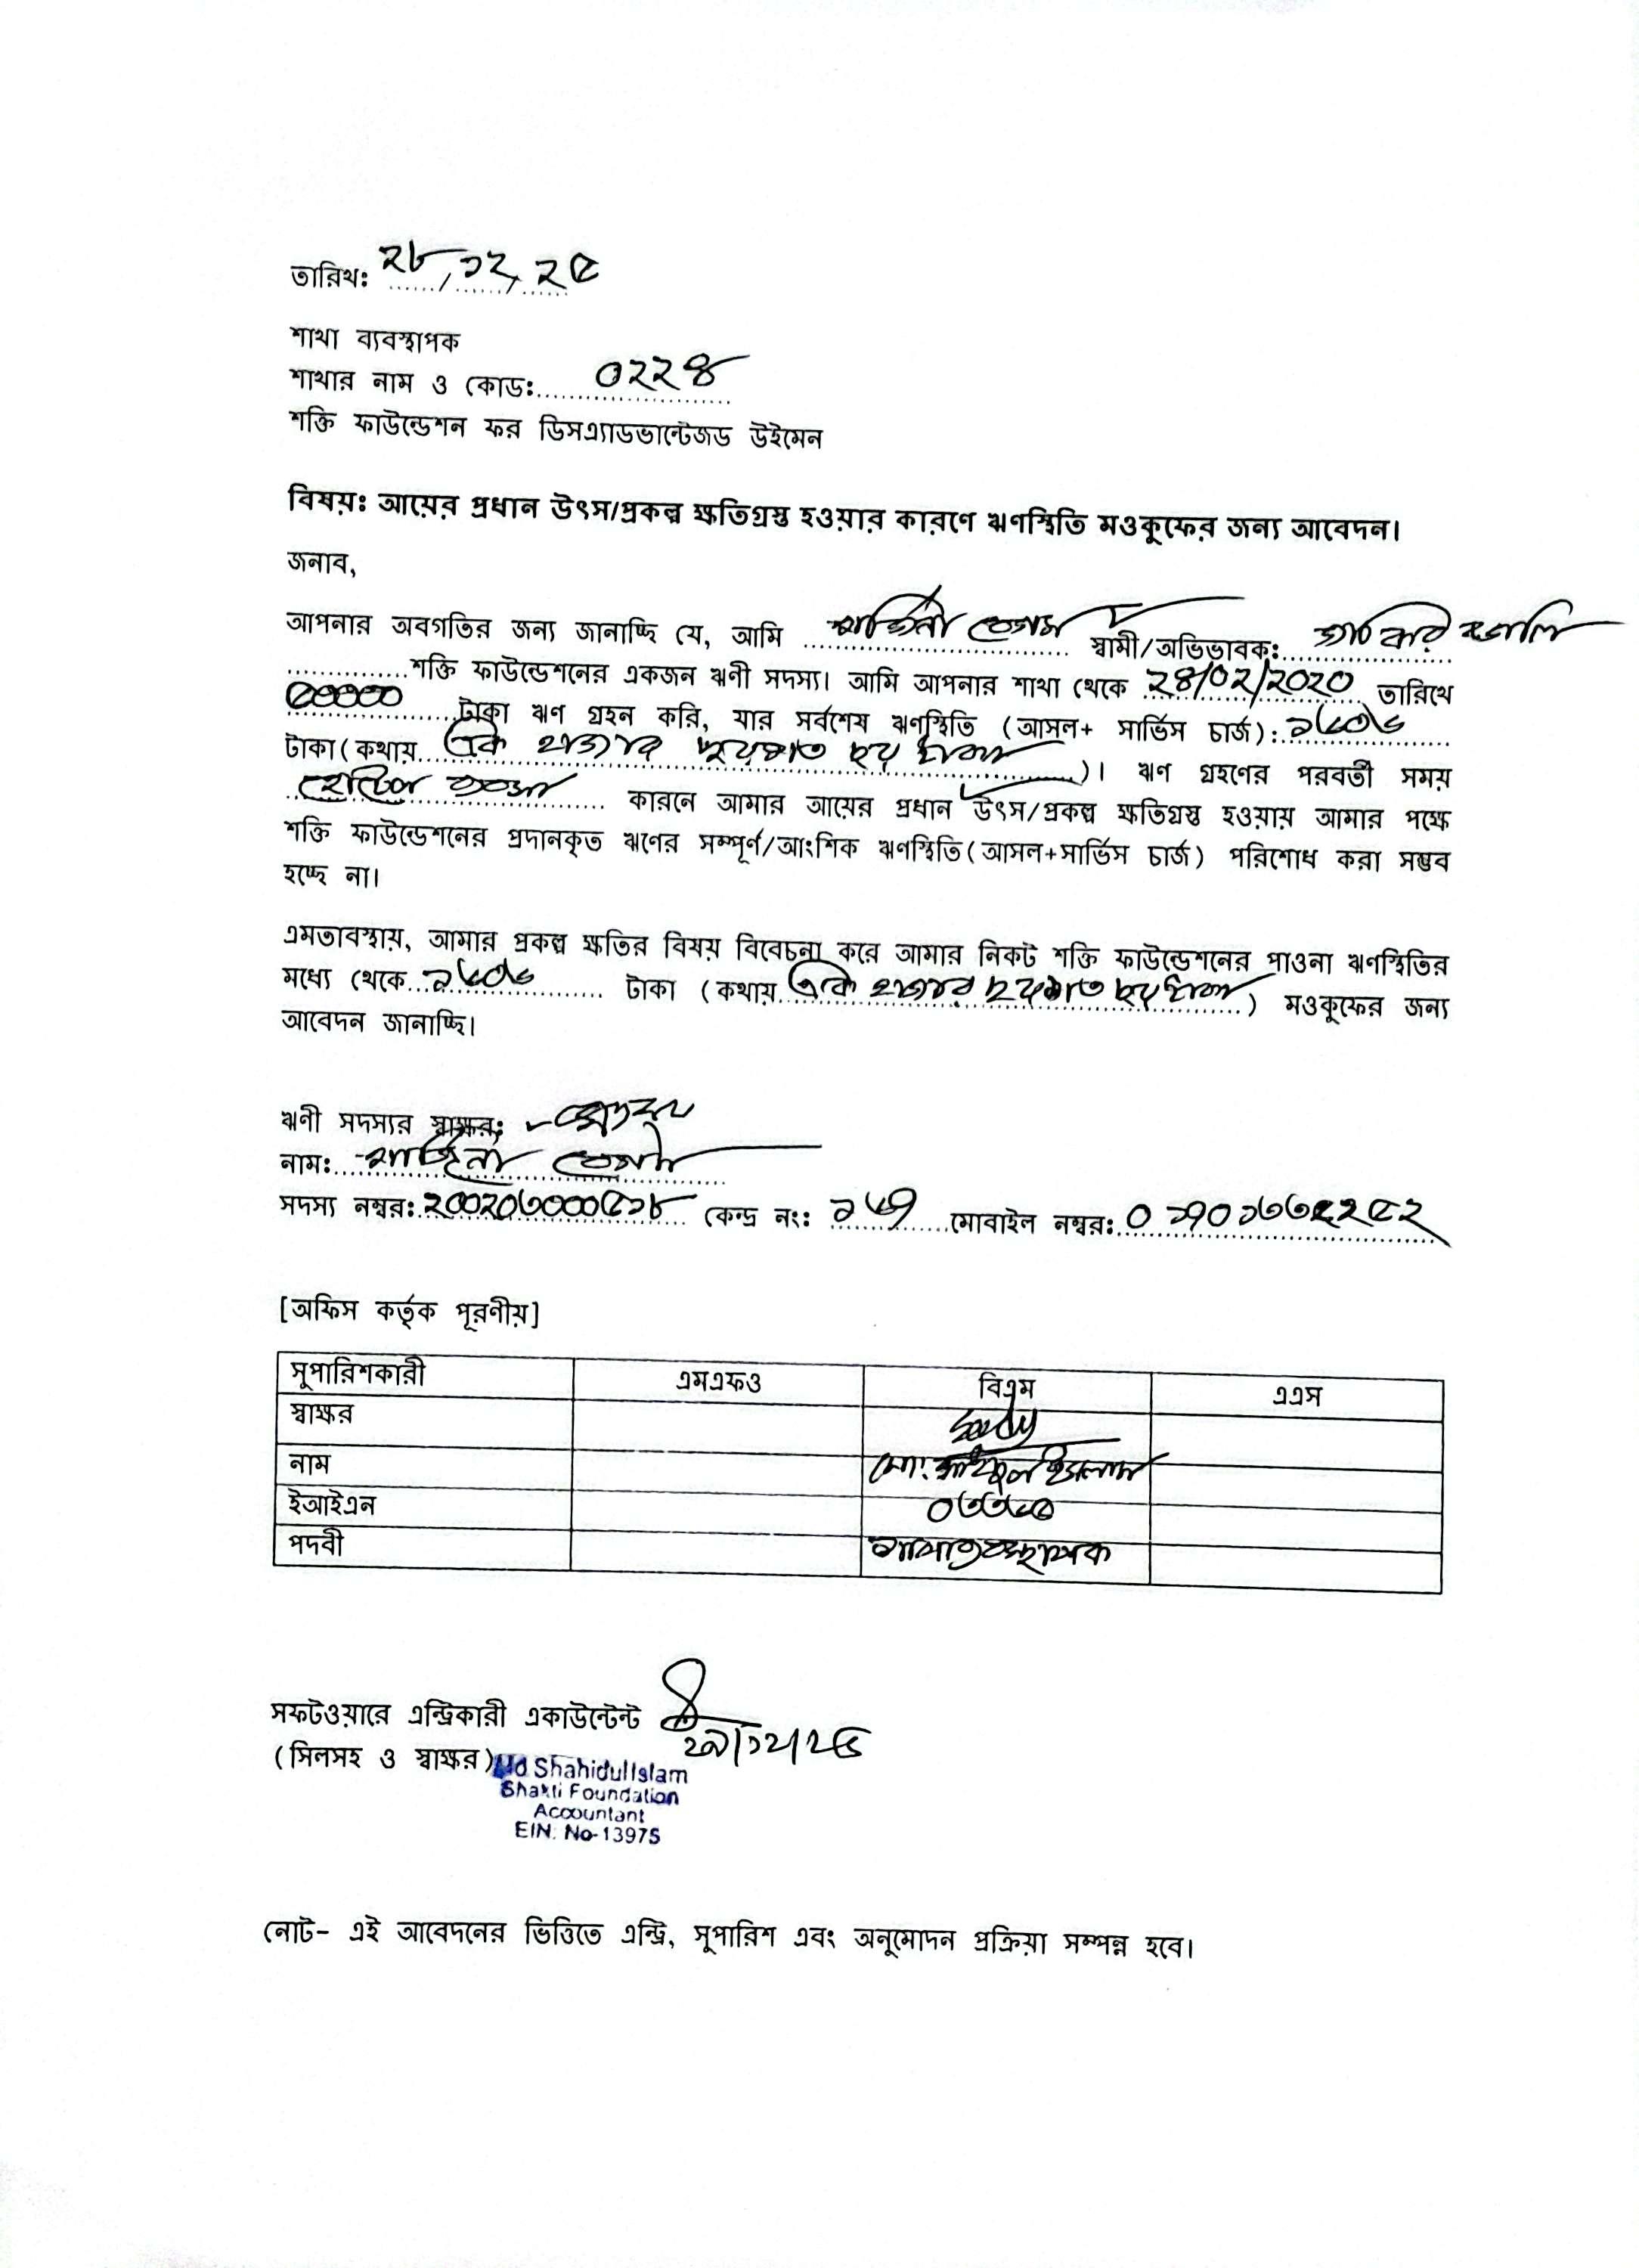 তারিখঃ ২৮,১২,২৫
শাখা ব্যবস্থাপক
শাখার নাম ও কোডঃ 0২২৪
শক্তি ফাউন্ডেশন ফর ডিসএ্যাডভান্টেজড উইমেন
বিষয়ঃ আয়ের প্রধান উৎস/প্রকল্প ক্ষতিগ্রস্ত হওয়ার কারণে ঋণস্থিতি মওকুফের জন্য আবেদন।
জনাব,
আপনার অবগতির জন্য জানাচ্ছি যে, আমি বেগম স্বামী/অভিভাবক:
শক্তি ফাউন্ডেশনের একজন ঋণী সদস্য। আমি আপনার শাখা থেকে ২৪/০২/২০২০ তারিখে
৫০০০০ টাকা ঋণ গ্রহন করি, যার সর্বশেষ ঋণস্থিতি (আসল+ সার্ভিস চার্জ): ১৬০৬
টাকা (কথায় এক হাজার ছয়শত ছয় টাকা)। ঋণ গ্রহণের পরবর্তী সময়
কারনে আমার আয়ের প্রধান উৎস/প্রকল্প ক্ষতিগ্রস্ত হওয়ায় আমার পক্ষে
শক্তি ফাউন্ডেশনের প্রদানকৃত ঋণের সম্পূর্ণ/আংশিক ঋণস্থিতি (আসল+সার্ভিস চার্জ) পরিশোধ করা সম্ভব
হচ্ছে না।
এমতাবস্থায়, আমার প্রকল্প ক্ষতির বিষয় বিবেচনা করে আমার নিকট শক্তি ফাউন্ডেশনের পাওনা ঋণস্থিতির
মধ্যে থেকে ১৬০৬ টাকা (কথায় এক হাজার ছয়শত ছয় টাকা) মওকুফের জন্য
আবেদন জানাচ্ছি।
ঋণী সদস্যর স্বাক্ষর:
নাম: বেগম
সদস্য নম্বর: কেন্দ্র নং: ১৬৭ মোবাইল নম্বর:
[অফিস কর্তৃক পূরণীয়]
সুপারিশকারী এমএফও বিএম এএস
স্বাক্ষর
নাম মো: ইসলাম
ইআইএন
পদবী শাখা ব্যবস্থাপক
সফটওয়ারে এন্ট্রিকারী একাউন্টেন্ট
(সিলসহ ও স্বাক্ষর)
Md Shahidul Islam
Shakti Foundation
Accountant
EIN: No-13975
নোট- এই আবেদনের ভিত্তিতে এন্ট্রি, সুপারিশ এবং অনুমোদন প্রক্রিয়া সম্পন্ন হবে।